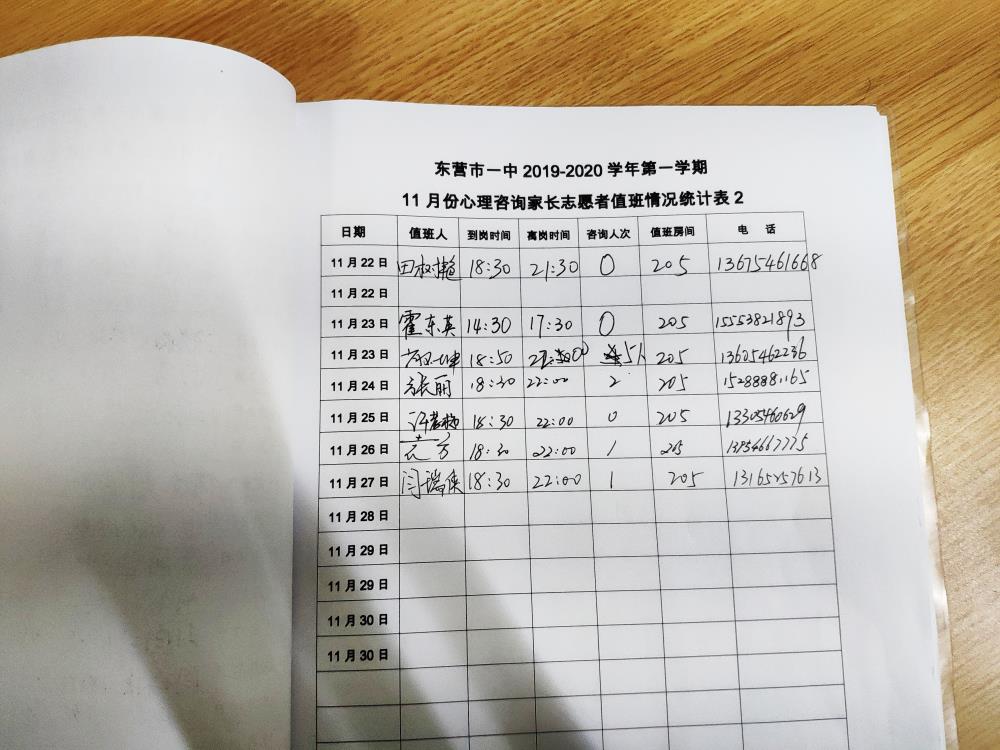 东营市一中 2019-2020 学年第一学期
11 月份心理咨询家长志愿者值班情况统计表 2
日期 值班人 到岗时间 离岗时间 咨询人次 值班房间 电 话
11 月 22 日 18:30 21:30 0 205 13675461668
11 月 22 日
11 月 23 日 霍东英 14:30 17:30 0 205 15553821893
11 月 23 日 18:50 205 13605462236
11 月 24 日 张丽 18:30 22:00 2 205 15288881165
11 月 25 日 18:30 22:00 0 205 13305460629
11 月 26 日 18:30 22:00 1 205
11 月 27 日 闫瑞侠 18:30 22:00 1 205 13165257613
11 月 28 日
11 月 29 日
11 月 29 日
11 月 30 日
11 月 30 日